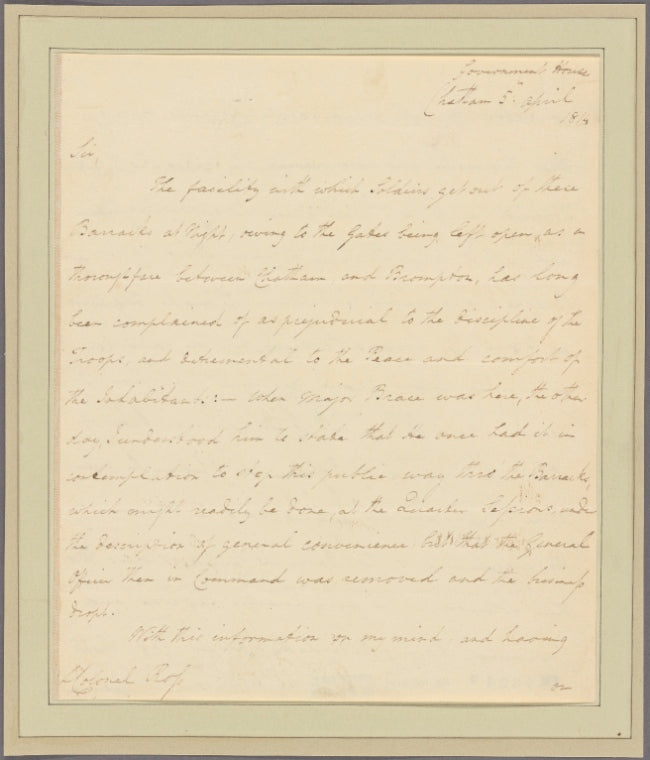 Government House
Chatham 5th April
181
Sir,
The facility with which Soldiers get out of these
Barracks at Night, owing to the Gates being left open, as a
thoroughfare between Chatham and Brompton, has long
been complained of as prejudicial to the discipline of the
Troops, and detremental to the Peace and comfort of
the Inhabitants:— When Major Brace was here, the other
day, I understood him to state that He once had it in
contemplation to stop this public way thro the Barracks,
which might readily be done, at the Quarter Sessions, under
the description of general convenience but that the General
Officer then in Command was removed and the business
dropt.
With this information on my mind and having
Colonel Ross
on